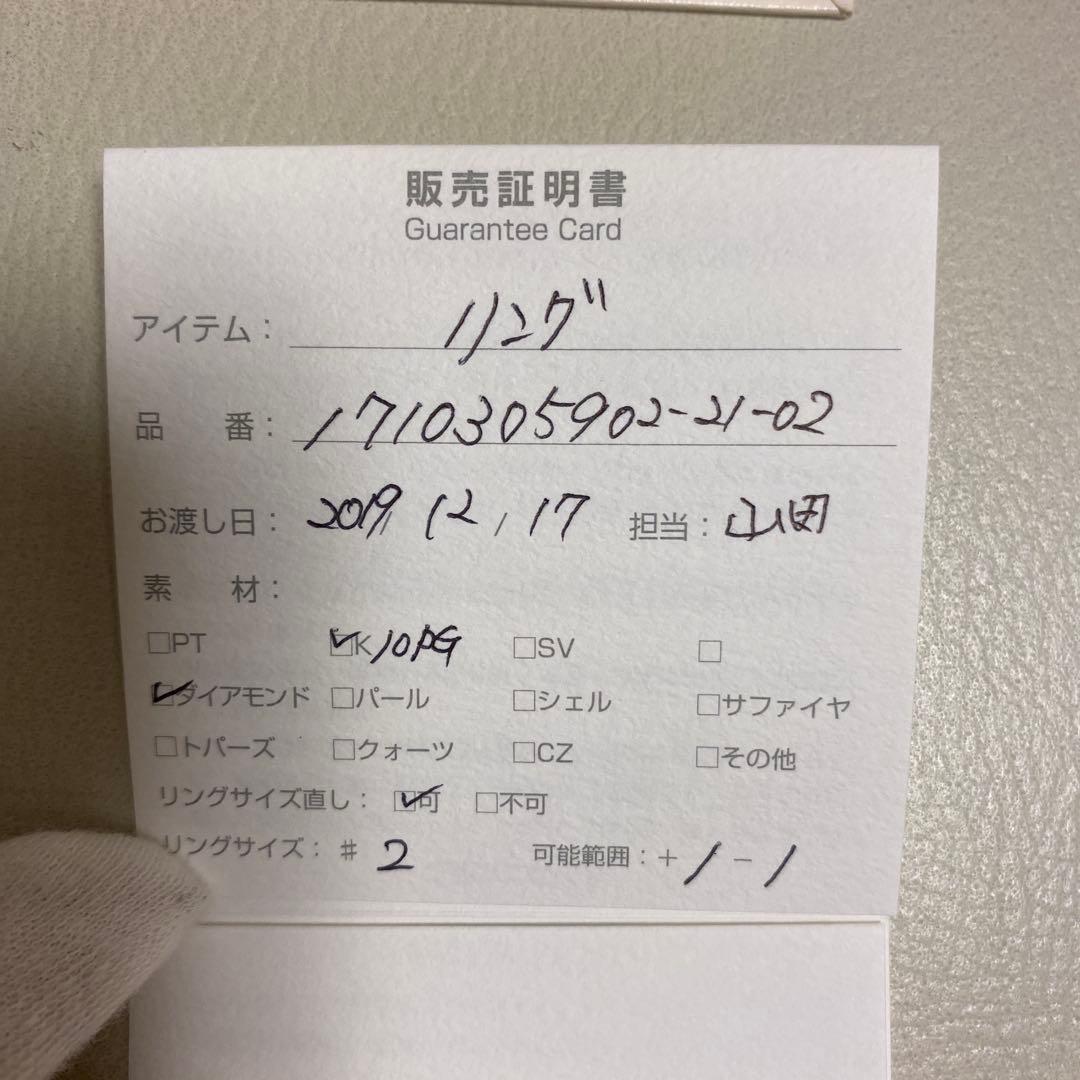 販売証明書
Guarantee Card
アイテム： リング
品　番： 1710305902-21-02
お渡し日： 2019, 12, 17 担当： 山田
素　材：
□PT ☑K10PG □SV □
☑ダイアモンド □パール □シェル □サファイヤ
□トパーズ □クォーツ □CZ □その他
リングサイズ直し： ☑可 □不可
リングサイズ：＃ 2 可能範囲：＋1－1